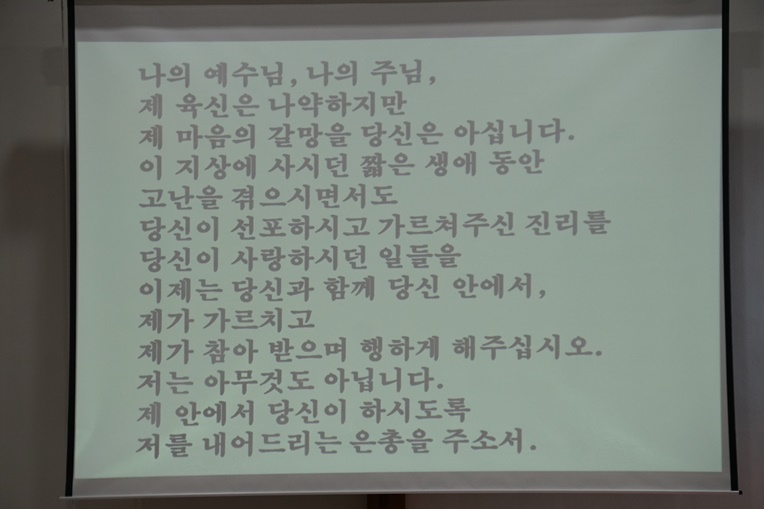 나의 예수님, 나의 주님,
제 육신은 나약하지만
제 마음의 갈망을 당신은 아십니다.
이 지상에 사시던 짧은 생애 동안
고난을 겪으시면서도
당신이 선포하시고 가르쳐주신 진리를
당신이 사랑하시던 일들을
이제는 당신과 함께 당신 안에서,
제가 가르치고
제가 참아 받으며 행하게 해주십시오.
저는 아무것도 아닙니다.
제 안에서 당신이 하시도록
저를 내어드리는 은총을 주소서.